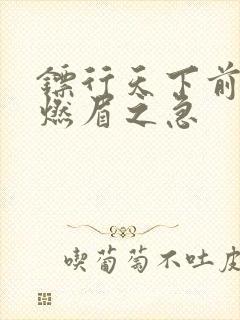 镖行天下前
燃眉之急
喫葡萄不吐皮